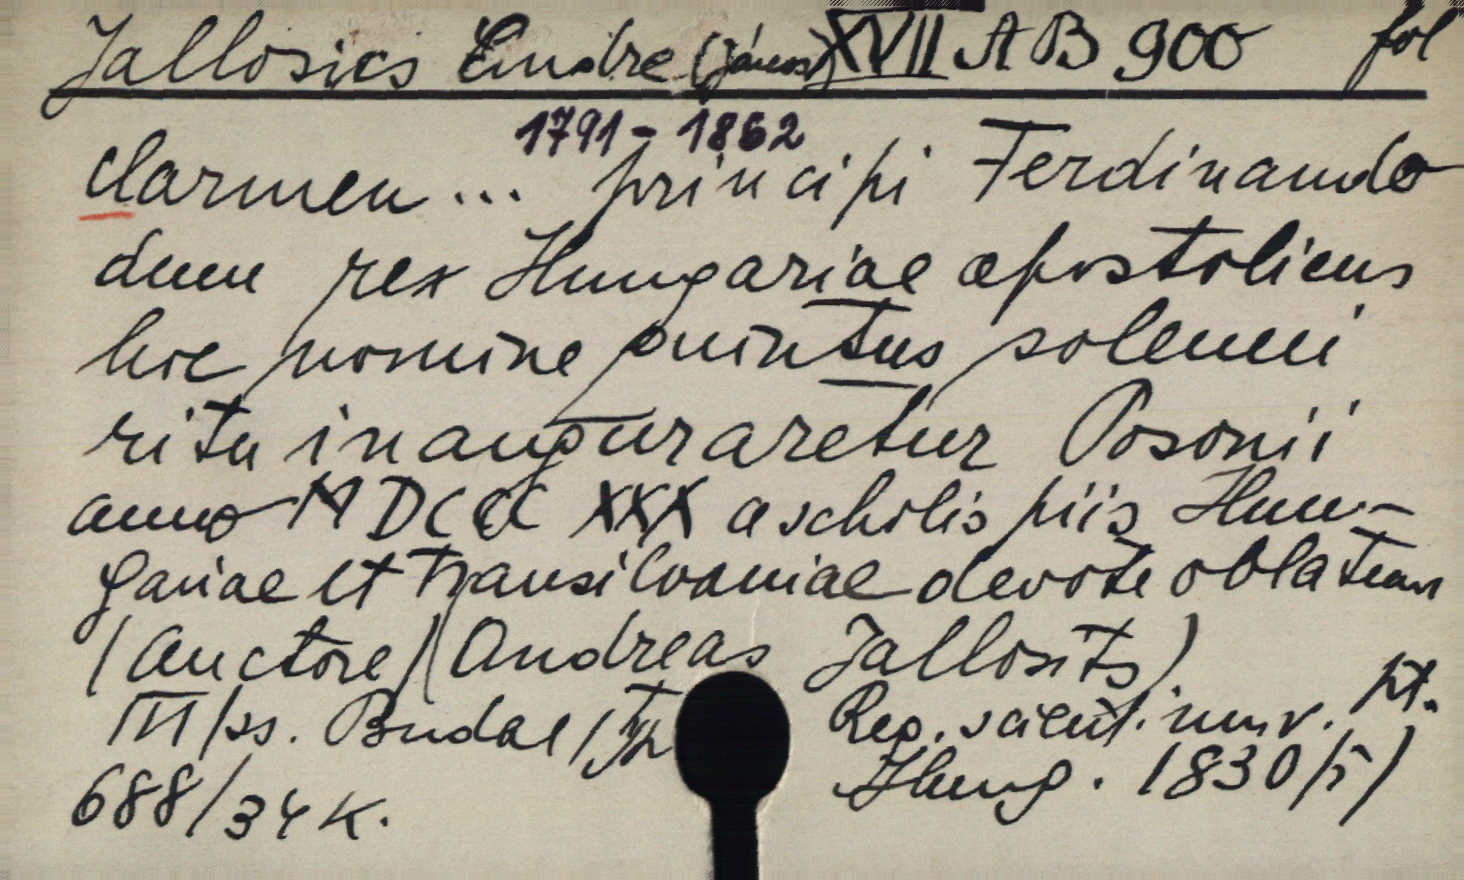 Jallosics Endre (János) XVII AB 900 fol
1791-1862
Carmen ... principi Ferdinando
dum rex Hungariae apostolicus
hoc nomine quintus solemni
ritu inauguraretur Posonii
anno MDCCCXXX a scholis piis Hun-
gariae et Transilvaniae devote oblatum
(Auctore) (Andreas Jallosits)
III/ss. Budae (Typ. Reg. scient. univ.
Hung. 1830/5) pt.
688/34 K.